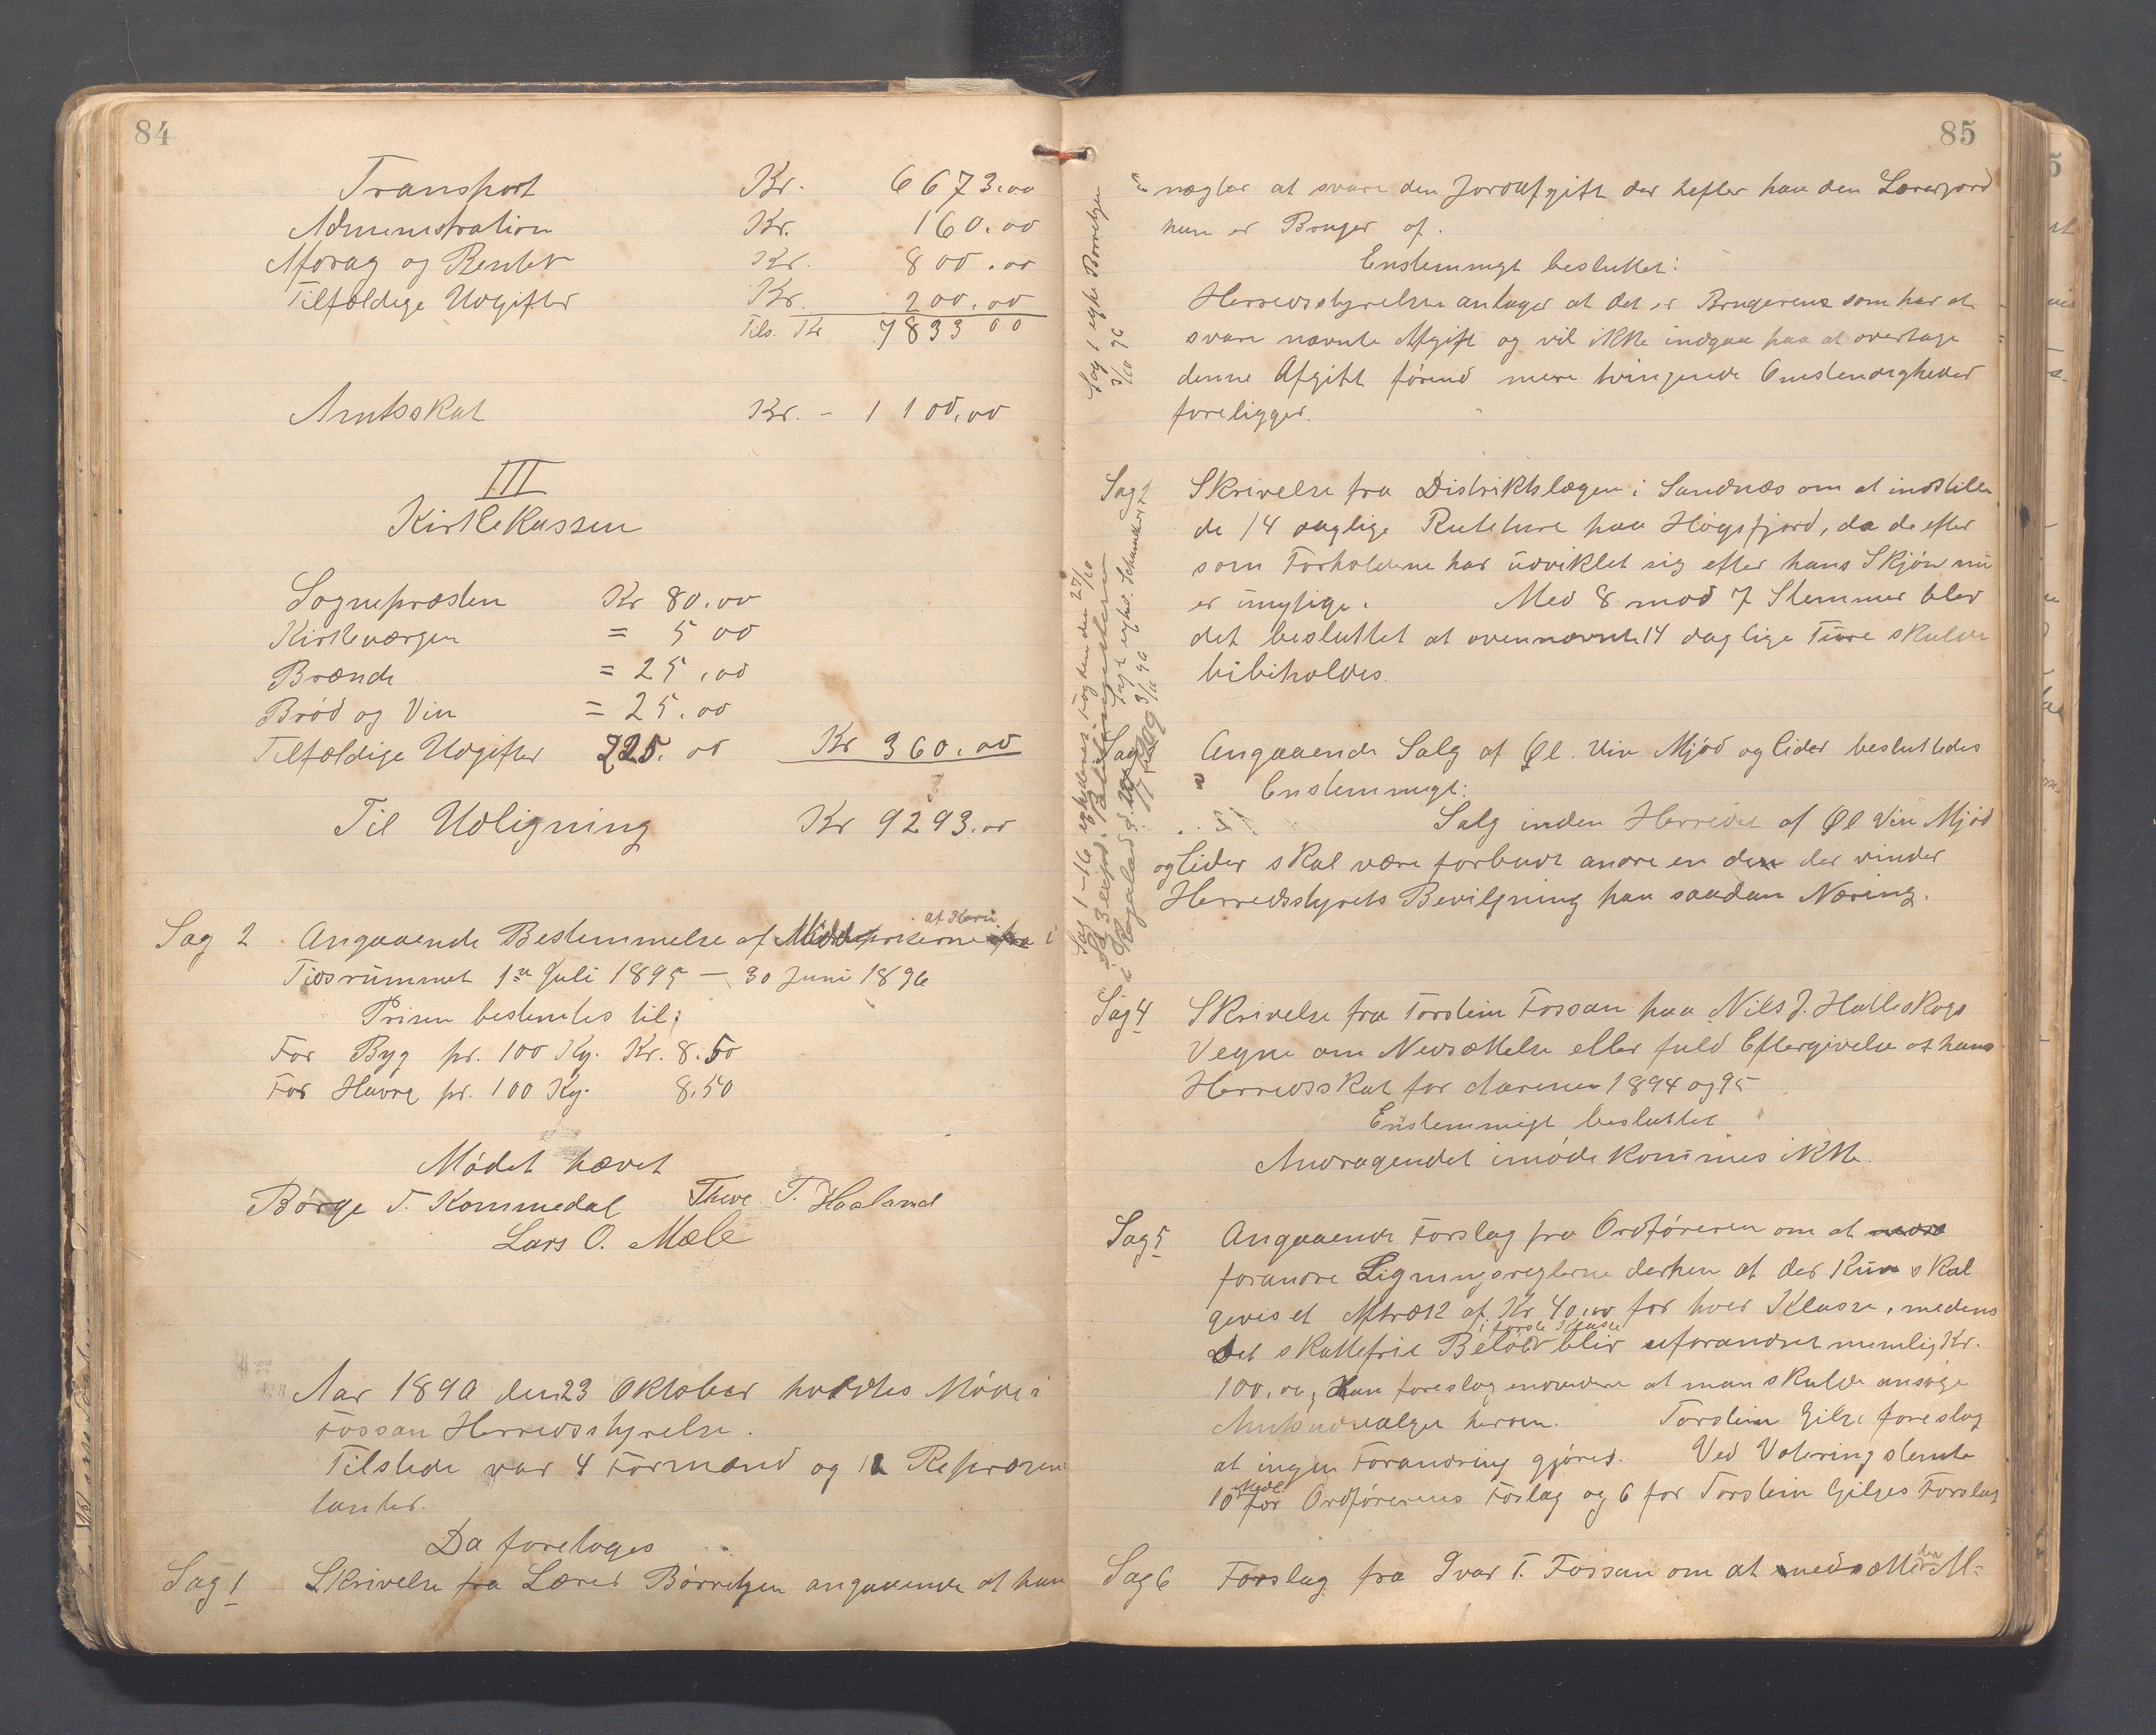 84
Transport Kr. 6673.00
Administration Kr. 160.00
Afdrag og Renter Kr. 800.00
Tilfældige Udgifter Kr. 200.00
Tils. Kr 7833 00
Amtsskat Kr. - 1100.00
III
Kirkekassen
Sognepræsten Kr 80.00
Kirkeværgen = 5 00
Brænde = 25.00
Brød og Vin = 25.00
Tilfældige Udgifter 225.00 Kr 360.00
Til Udligning Kr 9293.00
Sag 2 Angaaende Bestemmelse af Middelpriserne i
Tidsrummet 1ste Juli 1895 — 30 Juni 1896
Prisen bestemtes til;
For Byg pr. 100 Kg. Kr. 8.50
For Havre pr. 100 Kg. 8.50
Mødet hævet
Børge T. Kommedal Theve T. Haaland
Lars O. Mæle
Aar 1896 den 23 Oktober holdtes Møde i
Fossan Herredsstyrelse.
Tilstede var 4 Formænd og 12 Repræsen
tanter.
Da foretoges
Sag 1 Skrivelse fra Lærer Børretzen angaaende at han
85
nægter at svare den Jordafgift der hefter paa den Lærerjord
han er Bruger af.
Enstemmigt besluttet:
Herredsstyrelsen antager at det er Brugeren som har at
svare nævnte Afgift og vil ikke indgaa paa at overtage
denne Afgift førend mere tvingende Omstendigheder
foreligger.
Sag 2 Skrivelse fra Distriktslægen i Sandnæs om at indstille
de 14 daglige Ruteture paa Høgsfjord, da de efter
som Forholdene har udviklet sig efter hans Skjøn nu
er unytige. Med 8 mod 7 Stemmer blev
det besluttet at ovennævnte 14 daglige Ture skulde
bibeholdes.
Sag 3 Angaaende Salg af Øl. Vin Mjød og Cider besluttedes
Enstemmigt:
Salg inden Herredet af Øl Vin Mjød
og Cider skal være forbudt andre en den der vinder
Herredsstyrets Bevilgning paa saadan Næring.
Sag 4 Skrivelse fra Torstein Fossan paa Nils J. Halleskogs
Vegne om Nedsættelse eller fuld Eftergivelse af hans
Herredsskat for Aarene 1894 og 95
Enstemmigt besluttet
Andragendet imødekommes ikke.
Sag 5 Angaaende Forslag fra Ordføreren om at
forandre Ligningsreglerne derhen at der kun skal
gives et Aftræk af Kr. 40,00 for hver Klasse, medens
i første Klasse
Det skattefrie Beløb blir uforandret nemlig Kr.
100,00, Han foreslog endvidere at man skulde ansøge
Amtsudvalget herom. Torstein Gilje foreslog
at ingen Forandring gjøres. Ved Votering stemte
10 Medl. for Ordførerens Foslag og 6 for Torstein Giljes Forslag
Sag 6 Forslag fra Ivar T. Fossan om at nedsætte den Al-
Sag 1 exp. Børretzen
3/10 96